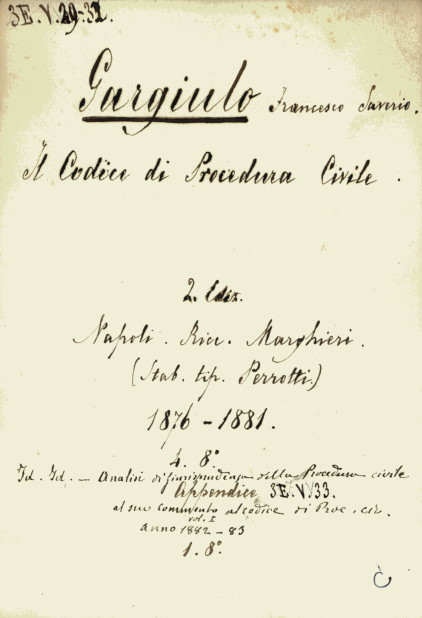 3E.V.29-32.
Gargiulo Francesco Saverio.
Il Codice di Procedura Civile.
2. Ediz.
Napoli. Ricc. Marghieri.
(Stab. tip. Perrotti.)
1876-1881.
4. 8°
Id. Id. — Analisi di giurisprudenza della Procedura civile
Appendice 3E.V.33.
al suo commento al codice di Proc. civ.
vol. I
Anno 1882-83
1. 8°.